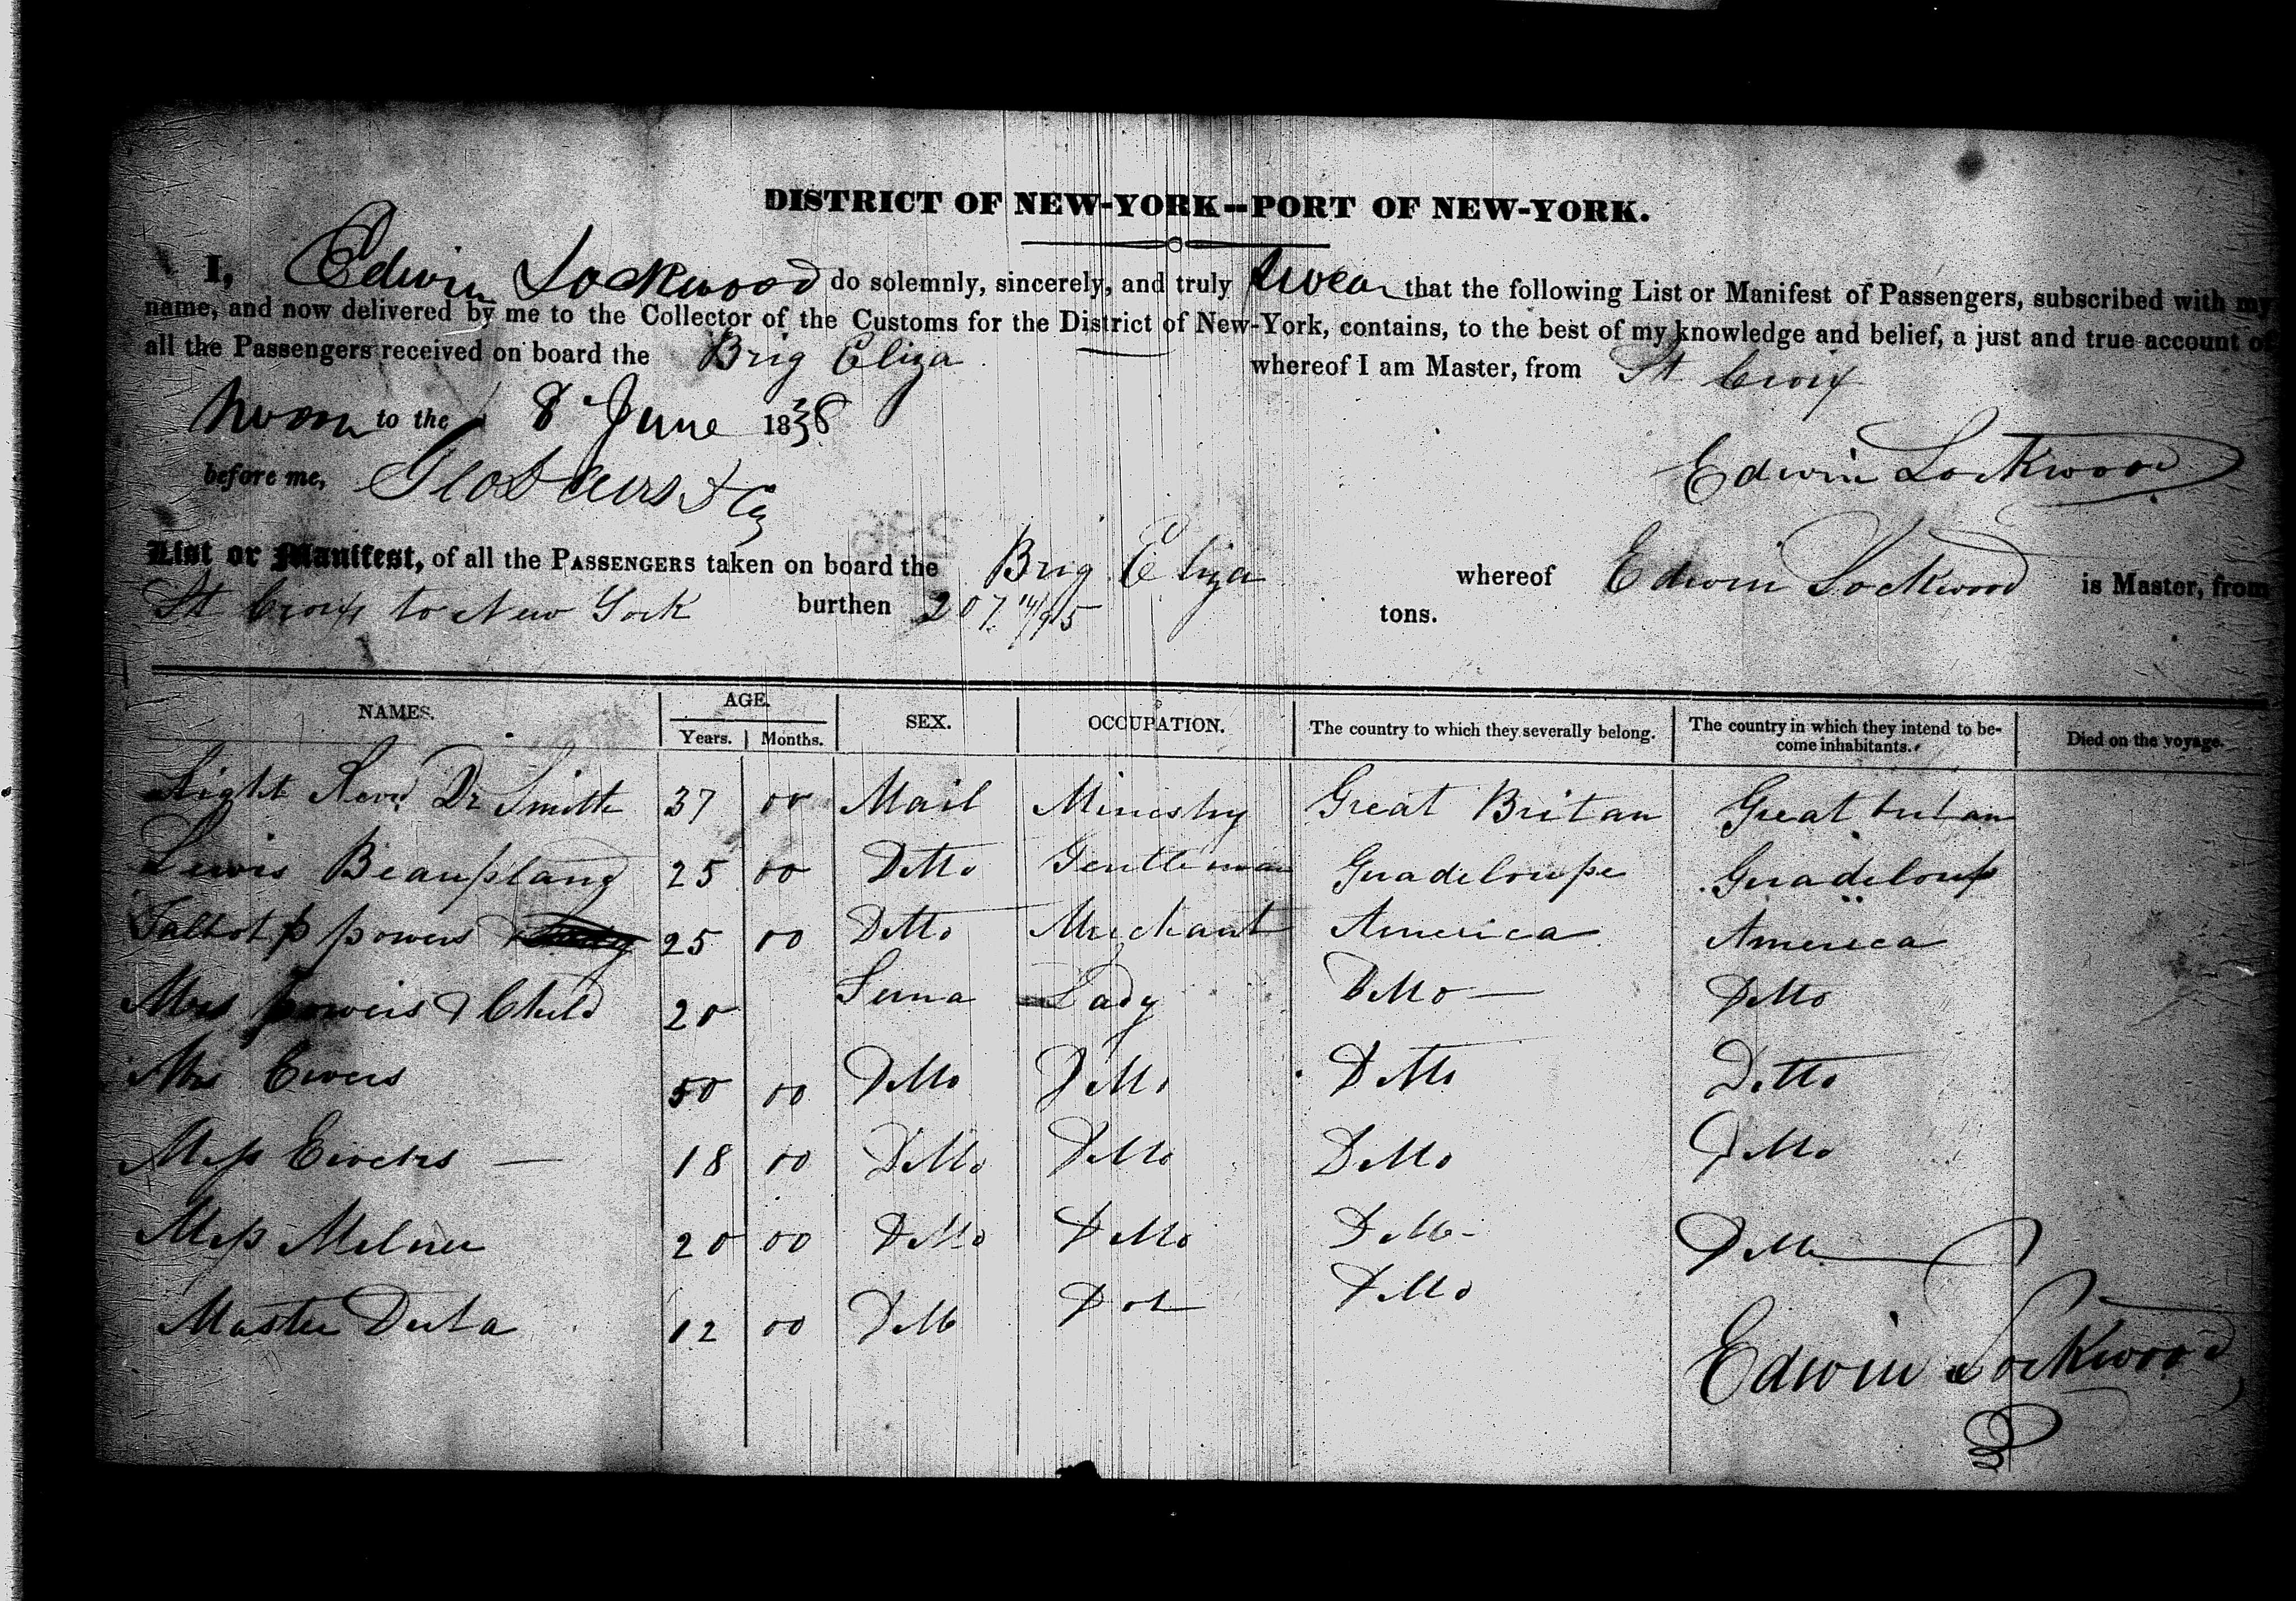 DISTRICT OF NEW-YORK--PORT OF NEW-YORK.
I, Edwin Lockwood do solemnly, sincerely, and truly swear that the following List or Manifest of Passengers, subscribed with my
name, and now delivered by me to the Collector of the Customs for the District of New-York, contains, to the best of my knowledge and belief, a just and true account of
all the Passengers received on board the Brig Eliza whereof I am Master, from St Croix
Sworn to the 8 June 1838
Edwin Lockwood
before me,
List or Manifest, of all the PASSENGERS taken on board the Brig Eliza whereof Edwin Lockwood is Master, from
St Croix to New York burthen 207 14/95 tons.
NAMES. AGE. Years. Months. SEX. OCCUPATION. The country to which they severally belong. The country in which they intend to become inhabitants. Died on the voyage.
Right Revd Dr Smith 37 00 Mail Minestry Great Britan Great britan
Lewis Beauplang 25 00 Ditto Gentleman Guadeloupe Guadeloup
Talbot p powers 25 00 Ditto Merchant America America
Mrs powers & Child 20 Lady Ditto Ditto
Mrs Ewers 50 00 Ditto Ditto Ditto Ditto
Miss Eivers 18 00 Ditto Ditto Ditto Ditto
Miss Milner 20 00 Ditto Ditto Ditto Ditto
Master 12 00 Ditto Dot Ditto
Edwin Lockwood